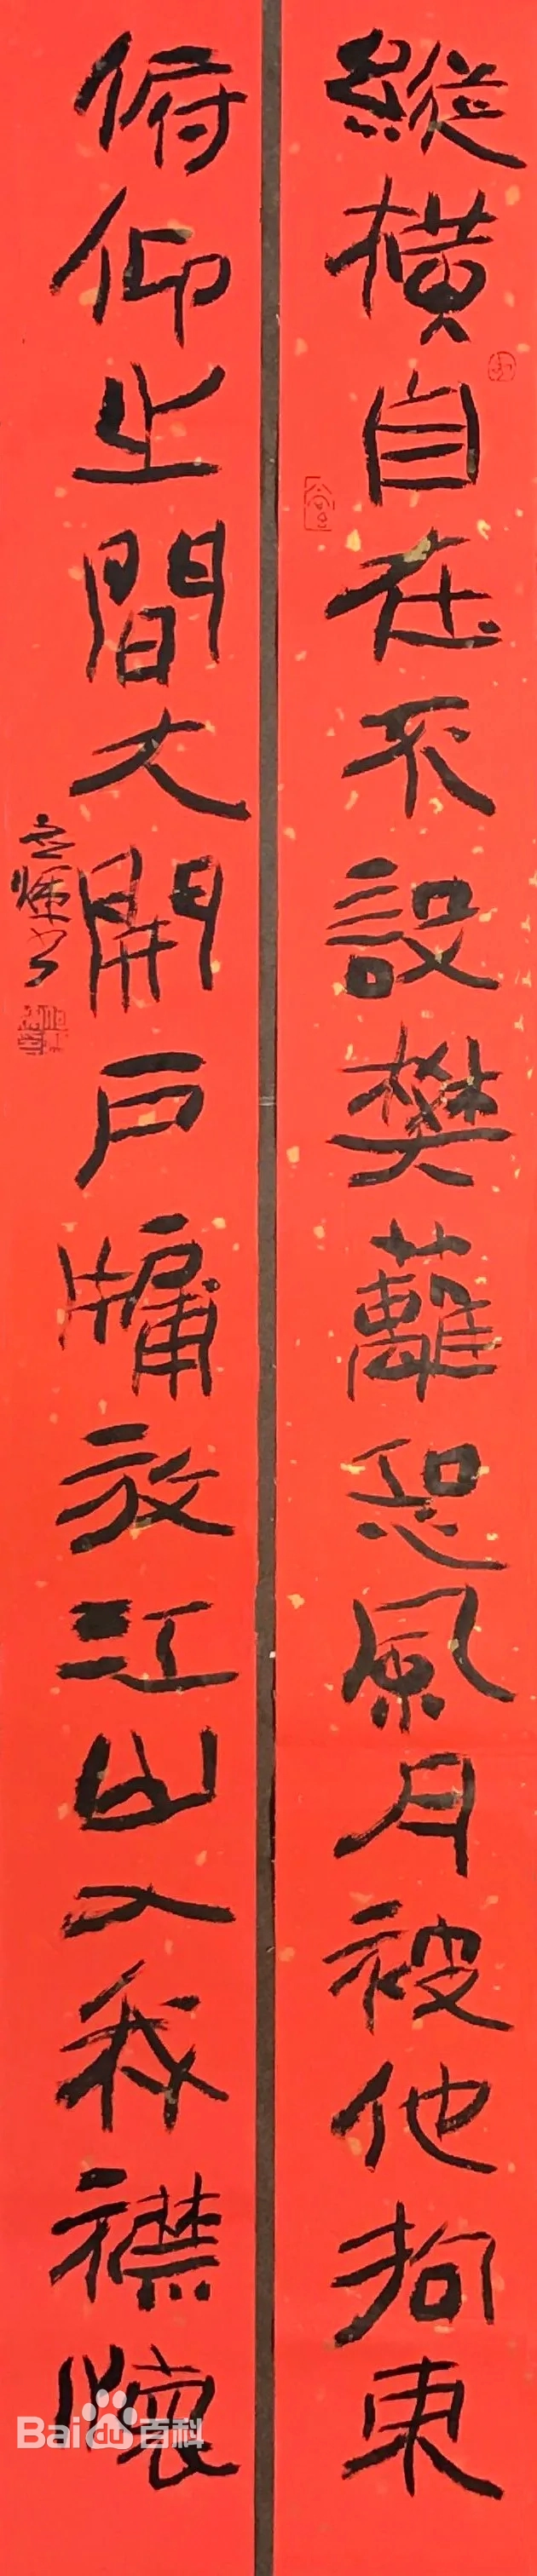 縱橫自在不設樊蘺恐風月被他拘束
俯仰之間大開戶牖放江山入我襟懷
Bai du 百科